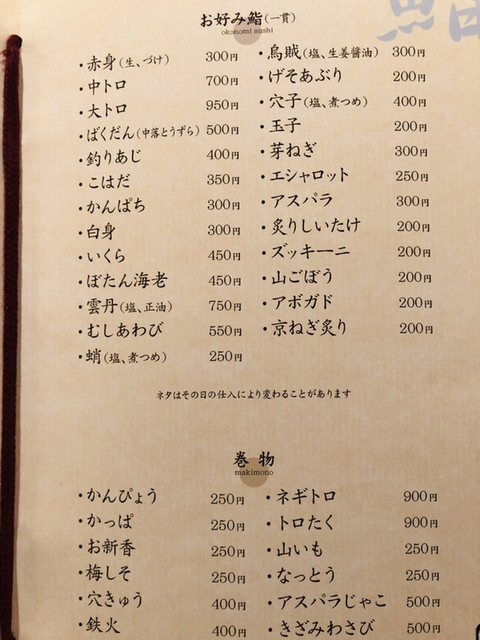 お好み鮨(一貫)
okonomi sushi
・赤身(生、づけ) 300円
・中トロ 700円
・大トロ 950円
・ばくだん(中落とうずら) 500円
・釣りあじ 400円
・こはだ 350円
・かんぱち 300円
・白身 300円
・いくら 450円
・ぼたん海老 450円
・雲丹(塩、正油) 750円
・むしあわび 550円
・蛸(塩、煮つめ) 250円
・烏賊(塩、生姜醤油) 300円
・げそあぶり 200円
・穴子(塩、煮つめ) 400円
・玉子 200円
・芽ねぎ 300円
・エシャロット 250円
・アスパラ 300円
・炙りしいたけ 200円
・ズッキーニ 200円
・山ごぼう 200円
・アボガド 200円
・京ねぎ炙り 200円
ネタはその日の仕入により変わることがあります
巻物
makimono
・かんぴょう 250円
・かっぱ 250円
・お新香 250円
・梅しそ 250円
・穴きゅう 400円
・鉄火 400円
・ネギトロ 900円
・トロたく 900円
・山いも 250円
・なっとう 250円
・アスパラじゃこ 500円
・きざみわさび 500円